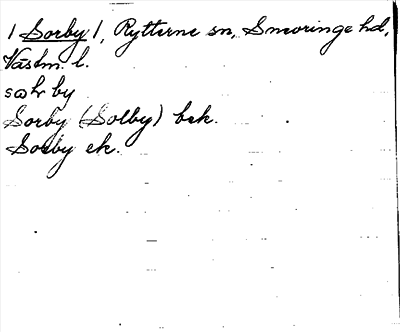 / Sorby /, Rytterne sn, Snevringe hd,
Västm. l.
sωLr by
Sorby (Solby) bek.
Sorby ek.